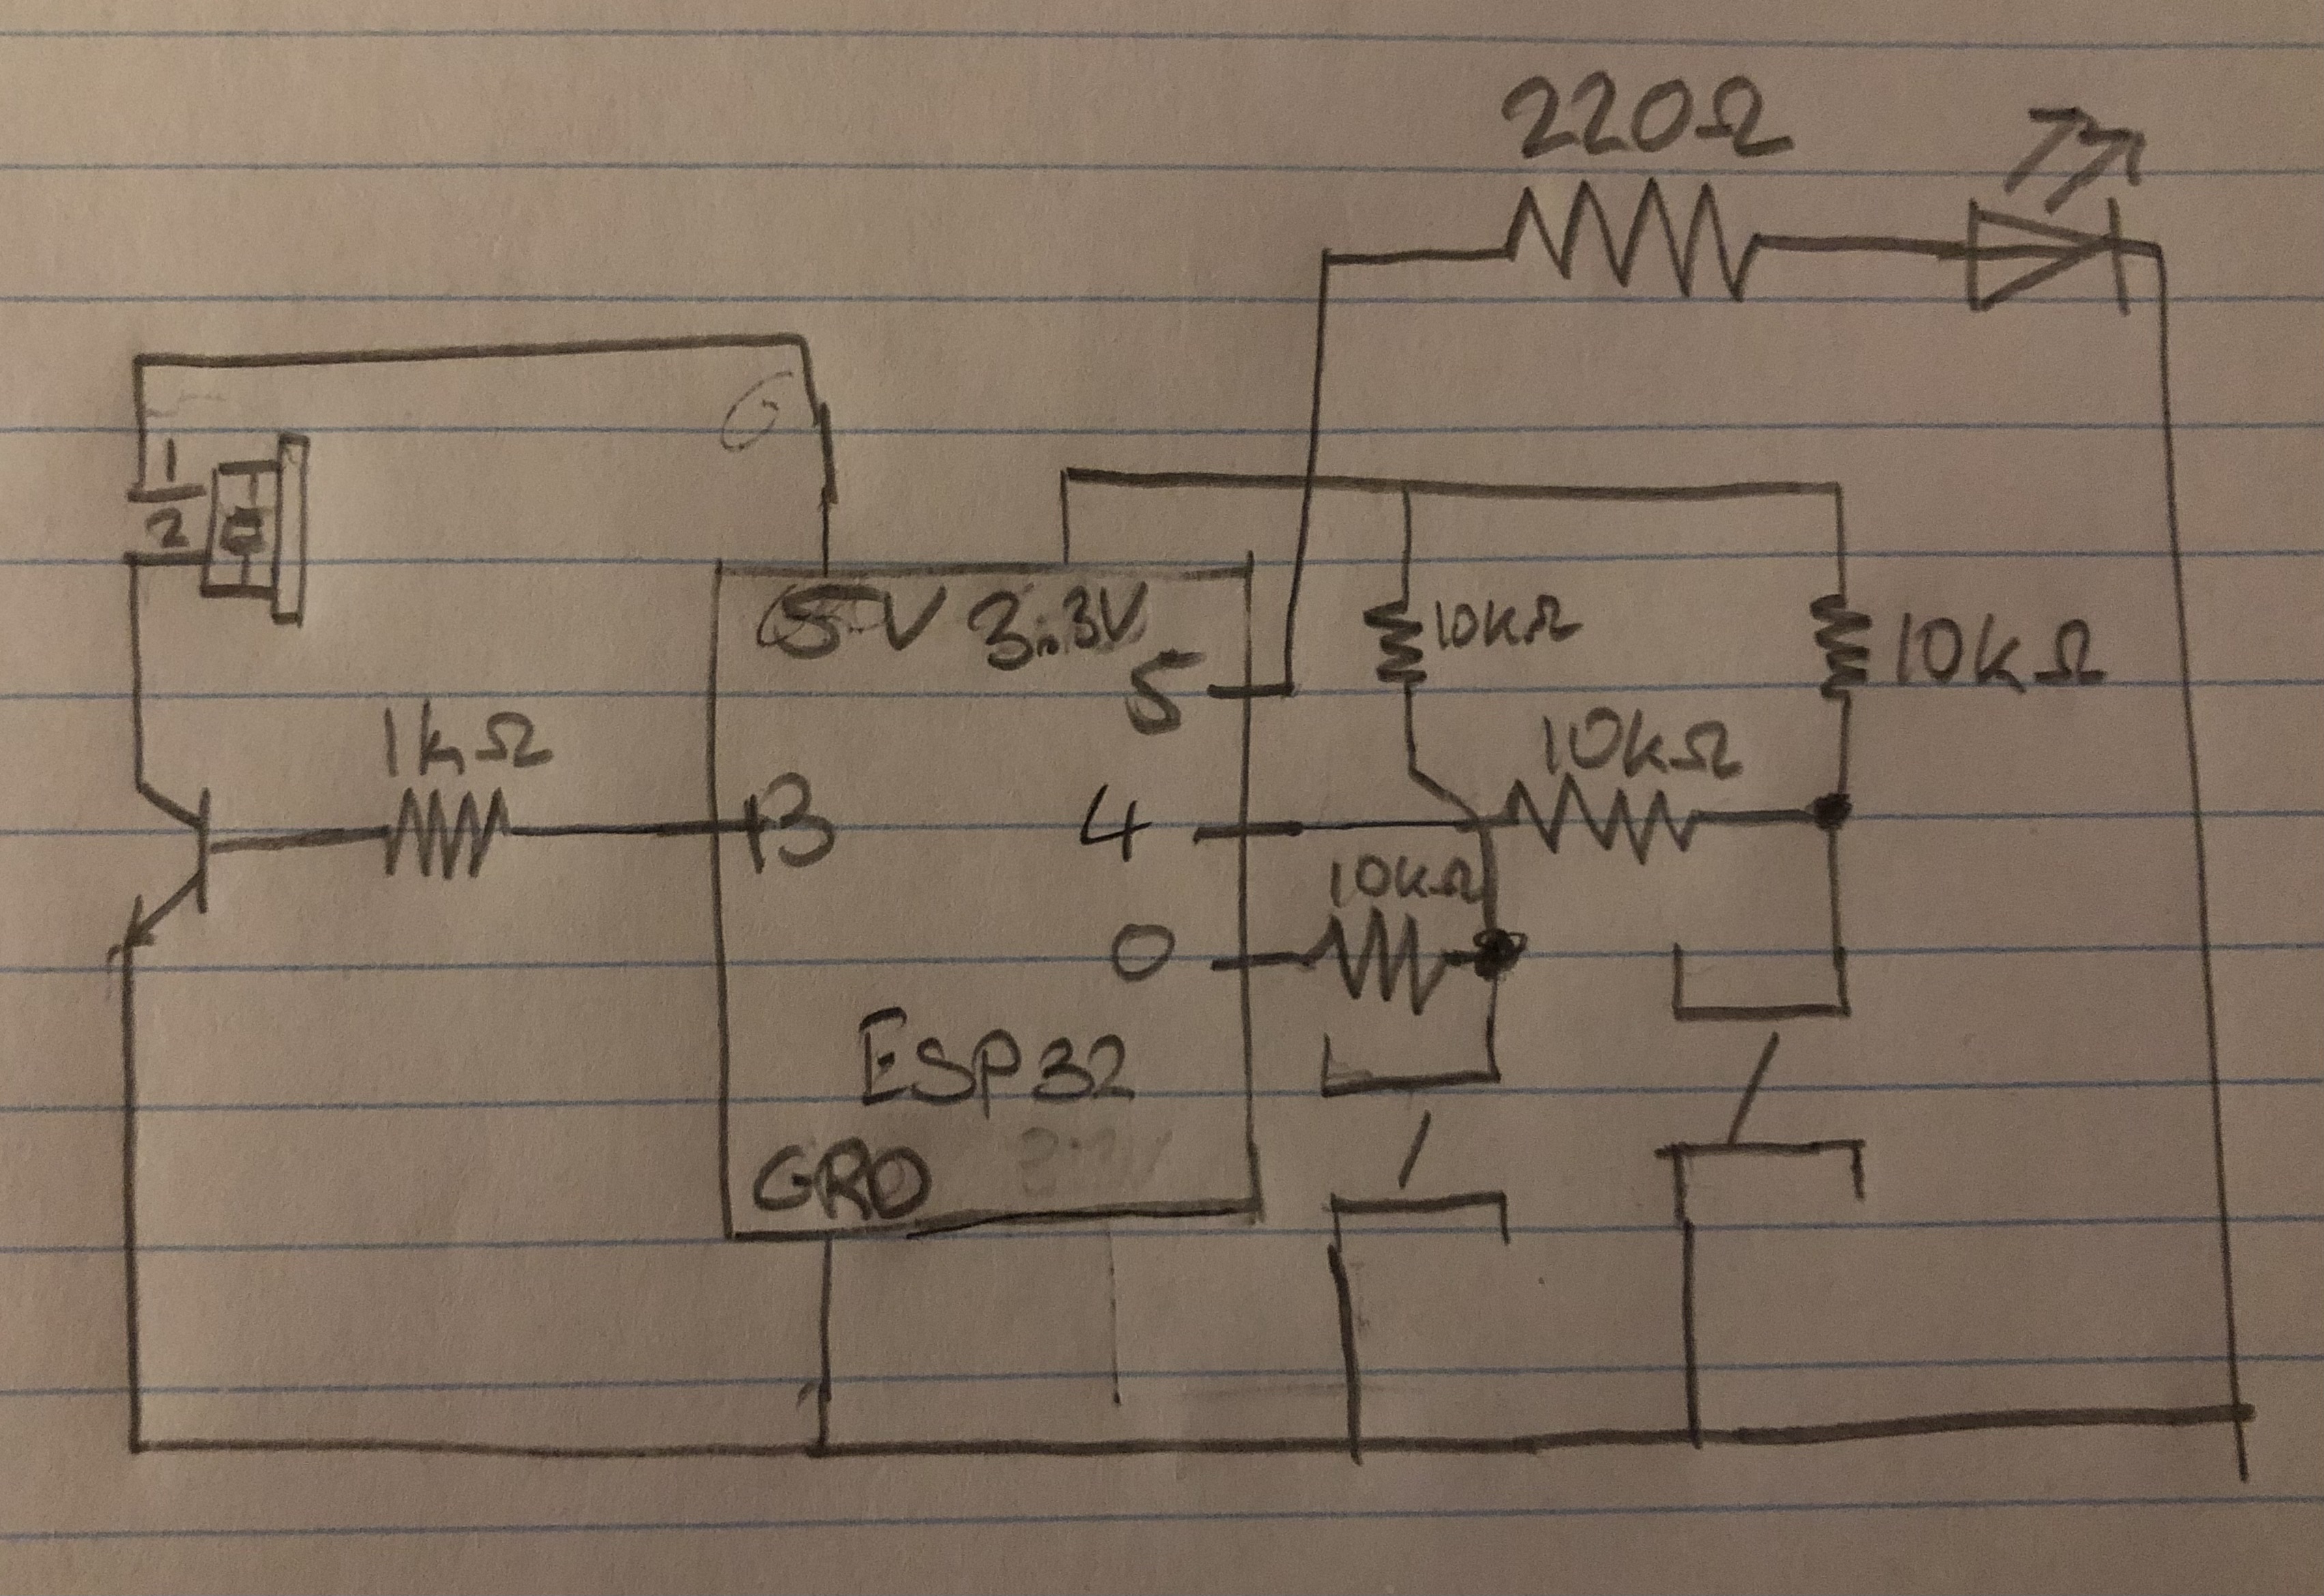 220Ω
1
2
5V 3.3V
5
10kΩ
10kΩ
1kΩ
10kΩ
13
4
10kΩ
0
ESP32
GRD